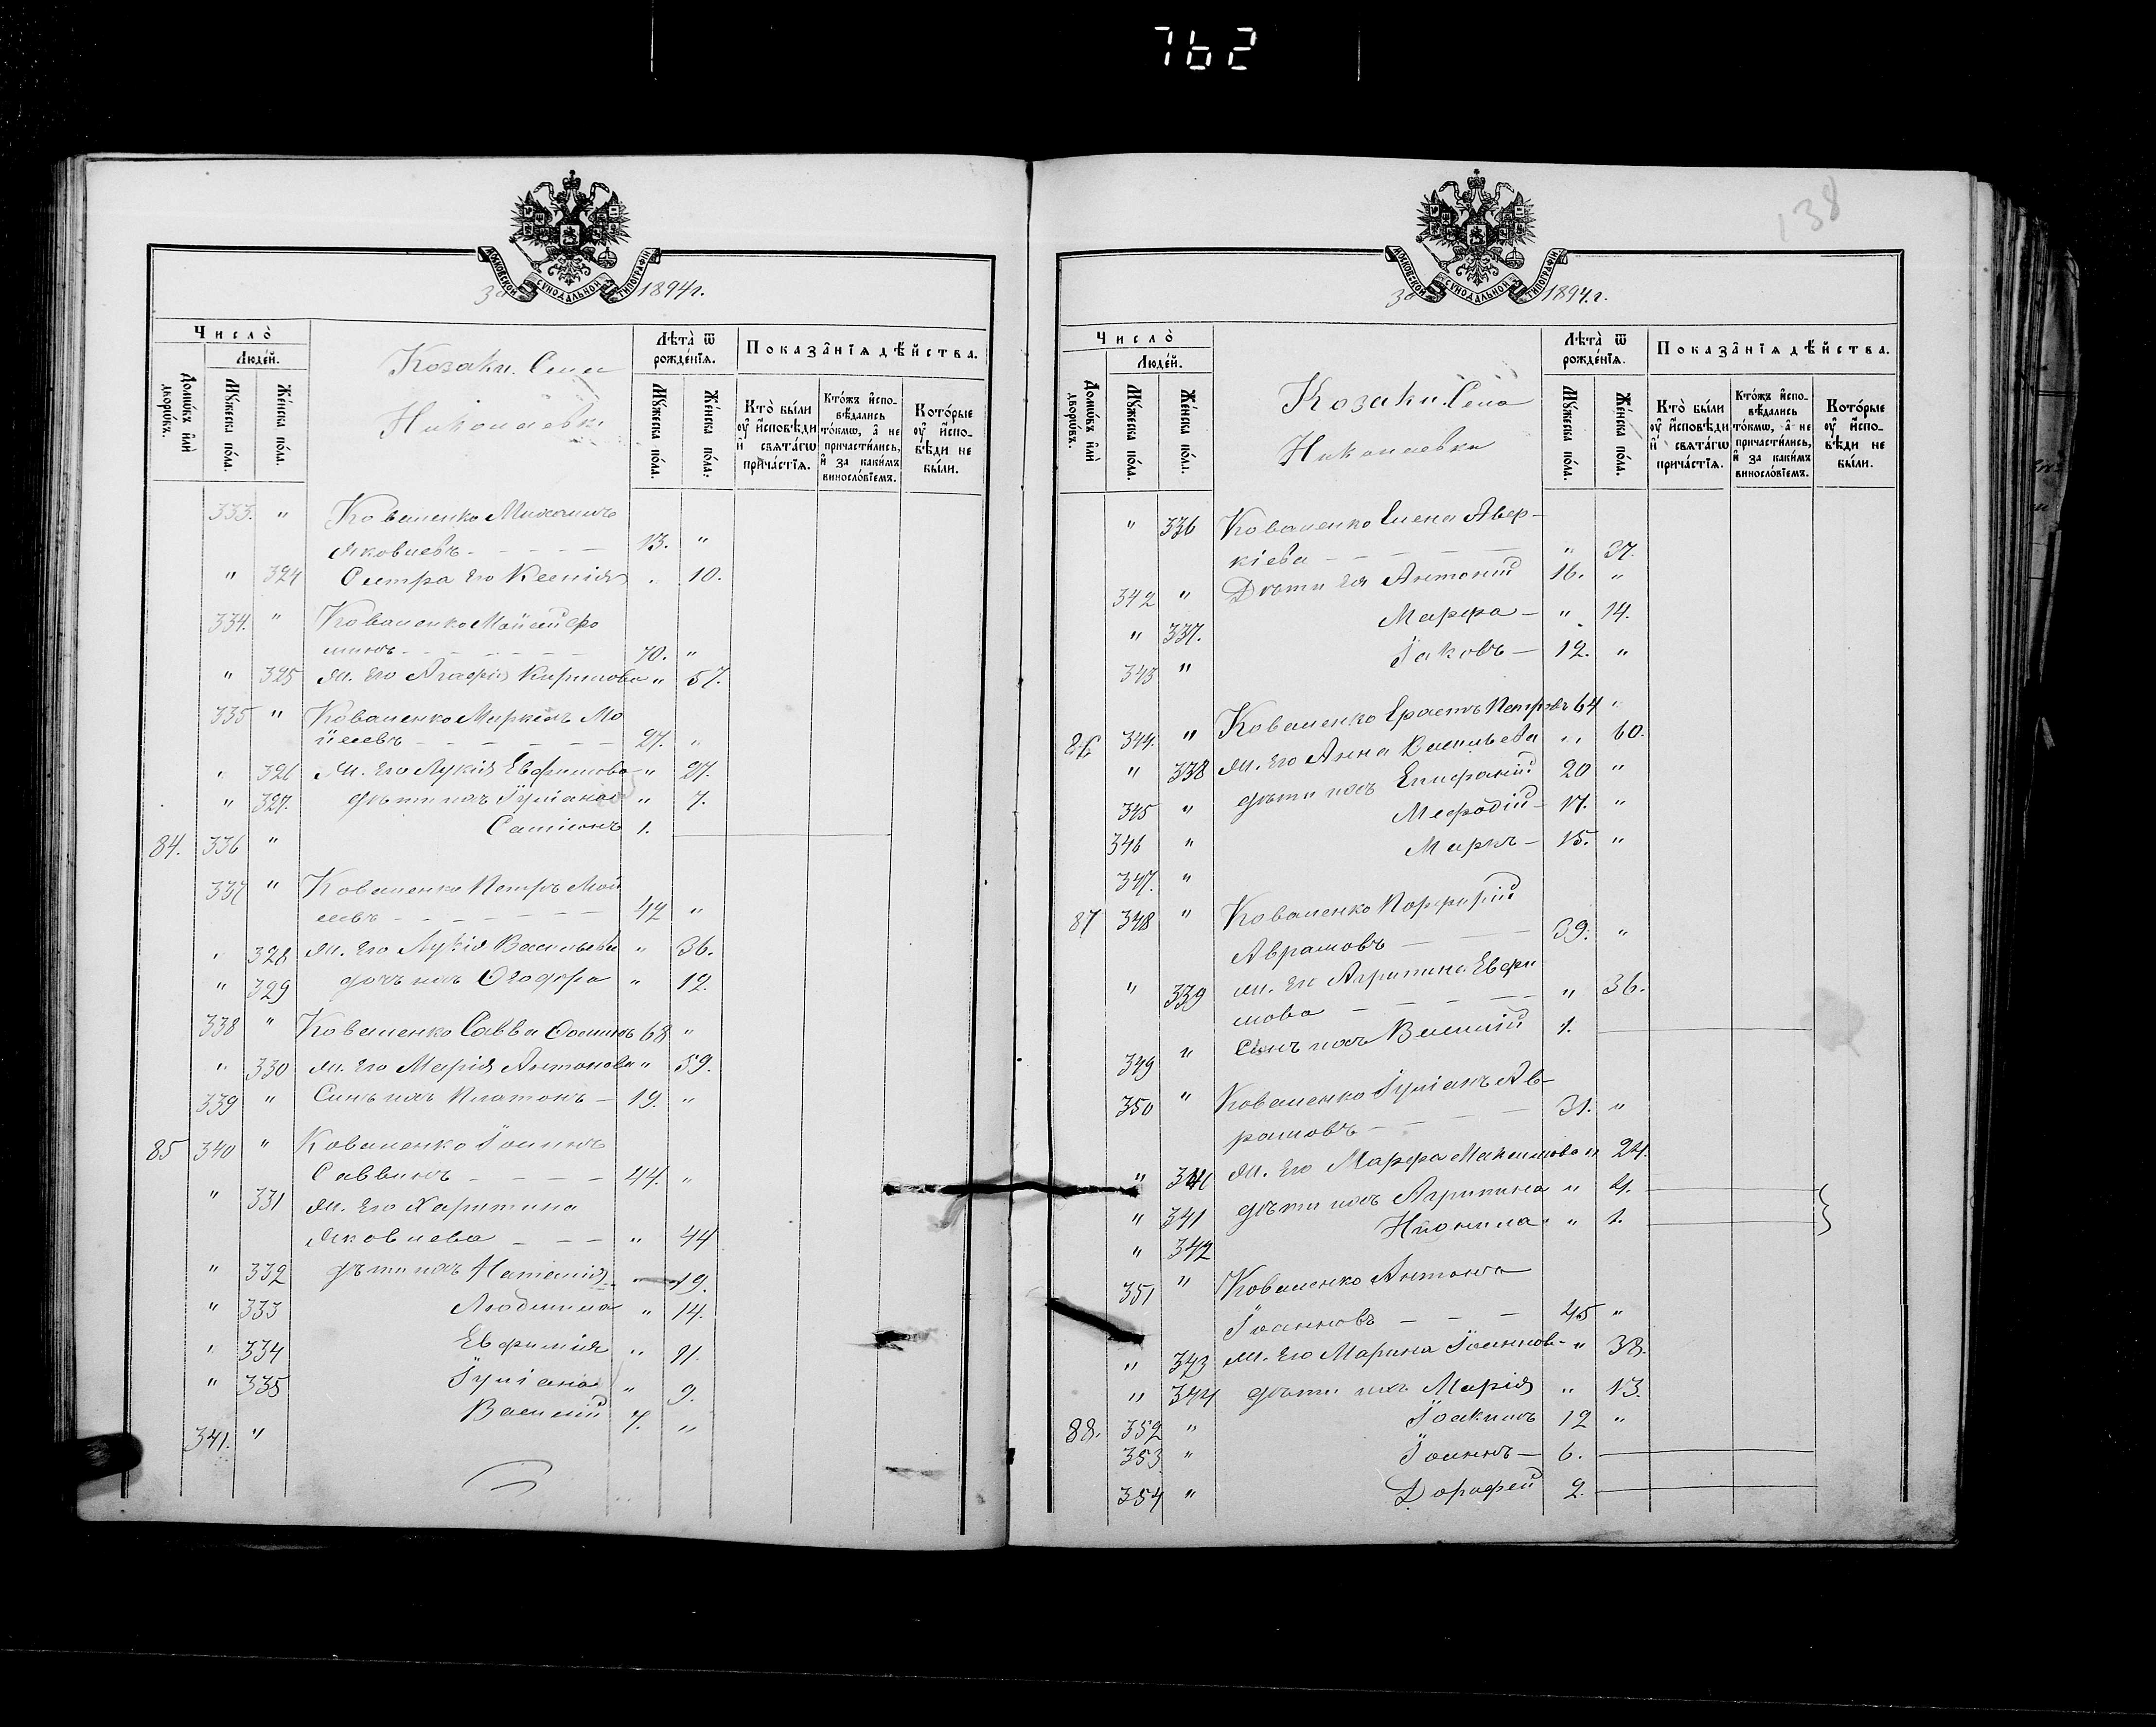 762
138
МОСКОВСКОЙ СѴНОДАЛЬНОЙ ТИПОГРАФІИ
За 1894 г.
Число̀
Люде́й.
Домѡ́въ и҆лѝ дворѡ́въ.
Мꙋ́жеска по́ла.
Же́нска по́ла.
Козаки. Села
Николаевки
Лѣта̀ ѿ рожде́нїѧ.
Мꙋ́жеска по́ла.
Же́нска по́ла.
Показа̑нїѧ дѣ́йства.
Кто̀ бы́ли оу҆ и҆́сповѣди и҆ свѧта́гѡ прича́стїѧ.
Кто́жъ и҆спо-
вѣ́дались
то́кмѡ, а҆ не
причасти́лись,
и҆ за каки́мъ
винослѡ́вїемъ.
Кото́рые
оу҆ и҆спо-
вѣди не
бы́ли.
333. " Коваленко Михаилъ
Яковлевъ - - - - 13. "
" 324 Сестра его Ксенія " 10.
334. " Коваленко Моисей Ѳо
минъ - - - - 70. "
" 325 ж. его Агафія Кирилова " 57.
335 " Коваленко Маркелъ Мо
исеевъ - - - - 27. "
" 326 ж. его Лукія Евфимова " 27.
" 327. дѣти ихъ Іуліана " 7.
84. 336 " Сампсонъ 1.
337 " Коваленко Петръ Мои
сеевъ - - - - 42 "
" 328 ж. его Лукія Васильева " 36.
" 329 дочь ихъ Ѳеодора " 12.
338 " Коваленко Савва Ѳоминъ 68 "
" 330 ж. его Марія Антонова " 59.
339 " Сынъ ихъ Платонъ - 19. "
85 340 " Коваленко Іоаннъ
Саввинъ - - - - 44. "
" 331 ж. его Харитина
Яковлева - - - " 44
" 332 дѣти ихъ Наталія " 19.
" 333 Людмила " 14.
" 334 Евфимія " 11.
" 335 Іуліана " 9.
341. " Василій 7. "
За 1894 г.
Число̀
Люде́й.
Домѡ́въ и҆лѝ дворѡ́въ.
Мꙋ́жеска по́ла.
Же́нска по́ла.
Козаки. Села
Николаевки
Лѣта̀ ѿ рожде́нїѧ.
Мꙋ́жеска по́ла.
Же́нска по́ла.
Показа̑нїѧ дѣ́йства.
Кто̀ бы́ли оу҆ и҆́сповѣди и҆ свѧта́гѡ прича́стїѧ.
Кто́жъ и҆спо-
вѣ́дались
то́кмѡ, а҆ не
причасти́лись,
и҆ за каки́мъ
винослѡ́вїемъ.
Кото́рые
оу҆ и҆спо-
вѣди не
бы́ли.
" 336 Коваленко Елена Авер-
кіева - - - - " 37.
342 " Дѣти ея Антоній 16. "
" 337. Марфа - " 14.
343 " Іаковъ - 12. "
86 344. " Коваленко Ерастъ Петровъ 64 "
" 338 ж. его Анна Васильева " 60.
345 " дѣти ихъ Епифаній 20 "
346 " Мефодій - 17. "
347. " Маркъ - 15. "
87 348 " Коваленко Порфирій
Аврамовъ - - - 39. "
" 339 ж. его Агрипина Евфи
мова - - - - " 36.
349 " Сынъ ихъ Василій 1.
350 " Коваленко Іуліанъ Ав-
рамовъ - - - 31. "
" 340 ж. его Марфа Максимова " 24.
" 341 дѣти ихъ Агрипина " 4.
" 342 Неонила " 1.
351 " Коваленко Антонъ
Іоанновъ - - - 45 "
" 343 ж. его Марина Іоаннов- " 38.
" 344 дѣти ихъ Марія " 13.
88. 352 " Іоакимъ 12 "
353 " Іоаннъ - 6.
354 " Дорофей 2.